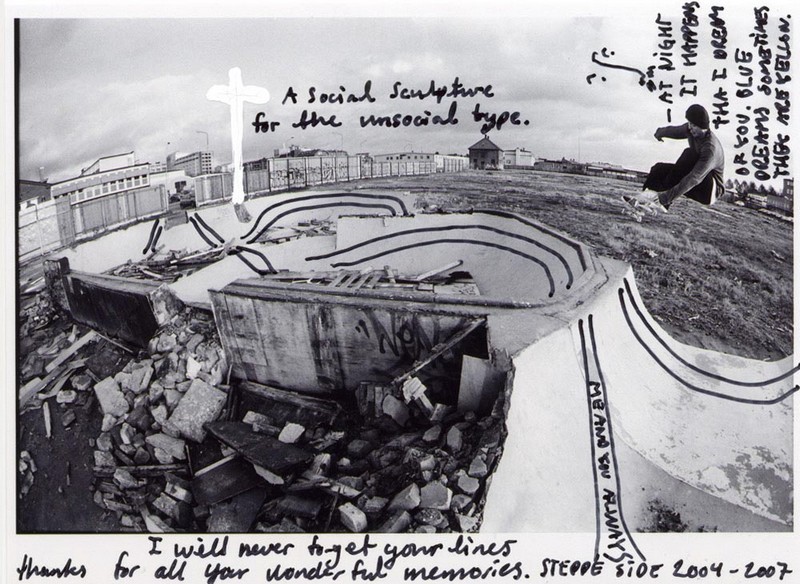 A Social Sculpture
for the unsocial type.
– AT NIGHT
IT HAPPENS
THA I DREAM
OF YOU. BLUE
DREAMS SOMETIMES
THEY ARE YELLOW.
"NOW
ME AND YOU ALWAYS
I will never forget your lines
thanks for all your wonderful memories. STEPPE SiDE 2004 - 2007